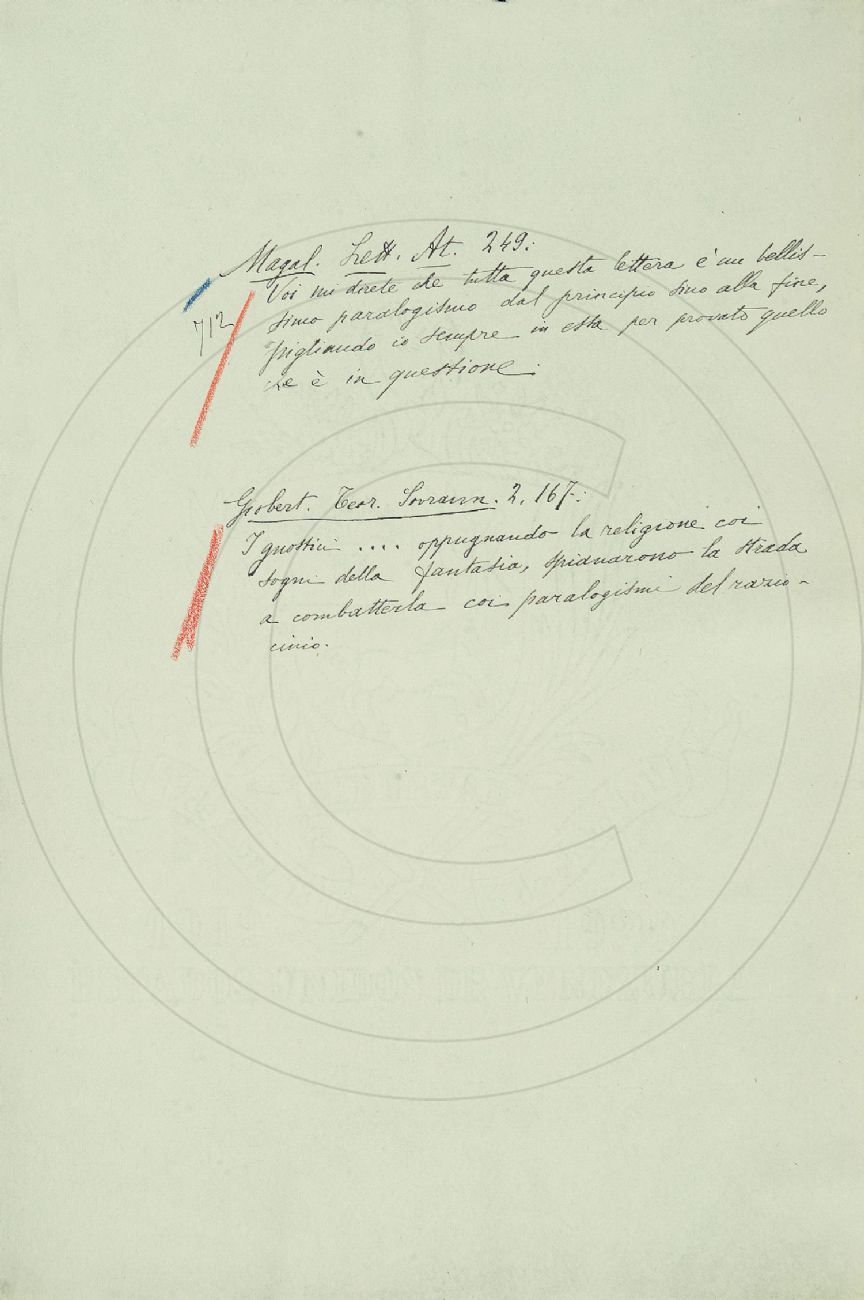 Magal. Lett. At. 249:
Voi mi direte che tutta questa lettera è un bellis-
simo paralogismo dal principio sino alla fine,
712
pigliando io sempre in essa per provato quello
che è in questione.
Giobert. Teor. Sovrann. 2, 167:
I gnostici .... oppugnando la religione coi
sogni della fantasia, spianarono la strada
a combatterla coi paralogismi del razio-
cinio.